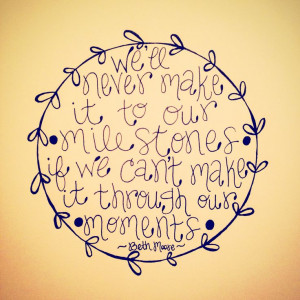 we'll
never make
it to our
milestones
if we can't make
it through our
moments
~Beth Moore~